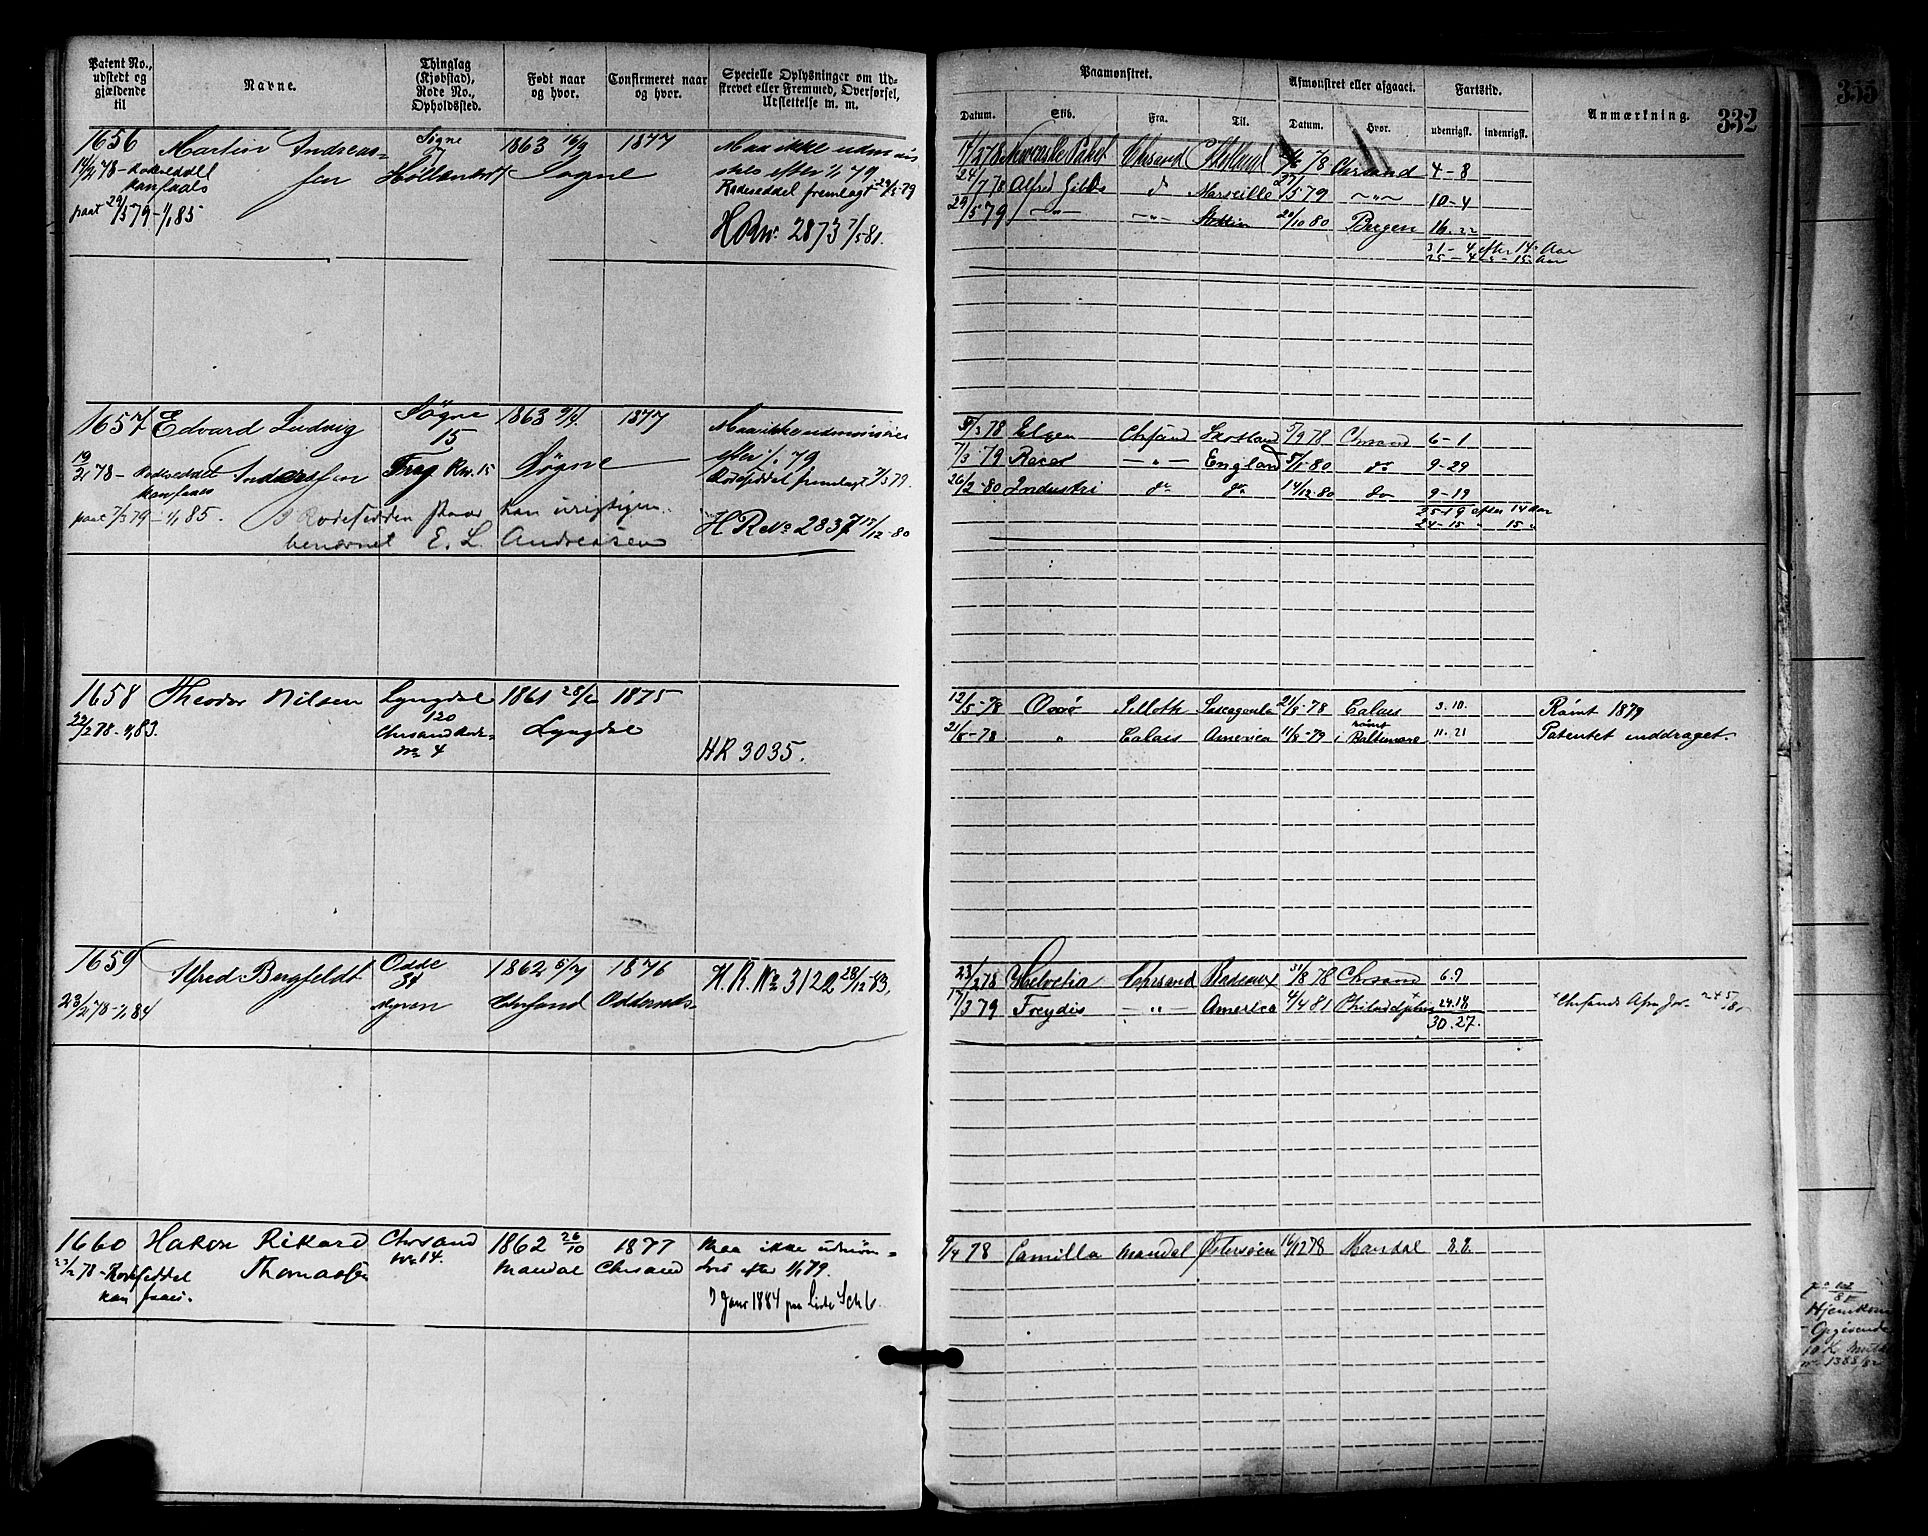 Patent No., udstedt og gjældende til
Navne.
Thinglag (Kjøbstad), Rode No., Opholdssted.
Født naar og hvor.
Confirmeret naar og hvor.
Specielle Oplysninger om Udskrevet eller Fremmed, Overførsel, Udslettelse m. m.
Paamønstret.
Afmønstret eller afgaaet.
Fartstid.
Anmærkning.
332
355
Datum.
Skib.
Fra.
Til.
Datum.
Hvor.
udenrigsk.
indenrigsk.
1656 Martin Andreassen Søgne 7 1863 16/9 1877 Maa ikke udmønstres efter 1/1 79
14/2 78 - Rodeseddel kan faaes Søgne
Rodeseddel fremlagt 29/5-79
paat 29/5 79 - 1/1 85
H R No. 2873 7/5 81.
24/7 78 Alfred Gibbs do Marseille 27/5 79 -"- 10-4
29/5 79 -"- -"- 20/10 80 Bergen 16-22
31-4 efter 14 Aar
25-4 - 15 Aar
1657 Edvard Ludvig Anderssen Søgne 15 1863 1877
Maa ikke udmønstres efter 1/1 79
19/2 78 - Rodeseddel kan faaes
Trag Rno. 15 Søgne
Rodeseddel fremlagt 7/3 79.
paat 7/3 79 - 1/1 85.
I Rodesedden staar han urigtigen benævnet E. L. Andreasen
H R No 2837 17/12-80
5/3 78 Elgen Chrsand Skotland 5/9 78 Chrsand 6-1
7/3 79 Racer -"- England 5/1-80 do 9-29
26/2-80 Industri do do 14/12-80 do 9-19
25-19 efter 14 Aar
24-15 " 15 "
1658 Theodor Nilsen Lyngdal 120 1861 28/6 1875
22/2 78 - 1/1 83.
Chrsand Rode No 4 Lyngdal
HR 3035.
12/5-78 Silloth Pascagoula 21/8-78 Calais 3.10. Rømt 1879
21/8-78 " Calais America 11/8-79 rømt i Baltimore 11.21 Patentet inddraget.
1659 Alfred Bergfeldt Odde 34 Myren 1862 5/7 Chrsand 1876 Oddernes H. R. No 3122 28/12-83.
23/2 78 - 1/1 84
23/2 78 Helvetia Chrsand 31/8 78 Chrsand 6.9
17/3 79 Freydis -"- America 4/4 81 Philadelphia + 24.18
30.27.
+ Chrsands Afm Jor. 245/81
1660 Hakon Rikard Thomassen Chrsand No 14. 1862 26/10 Mandal 1877 Chrsand Maa ikke udmønstres efter 1/1 79.
23/2 78 - Rodeseddel kan faaes.
Janr 1884 paa Liste
9/4 78 Camilla Mandal Østersøen 16/12 78 Mandal 8.8.
Hjemkom
Opgivende